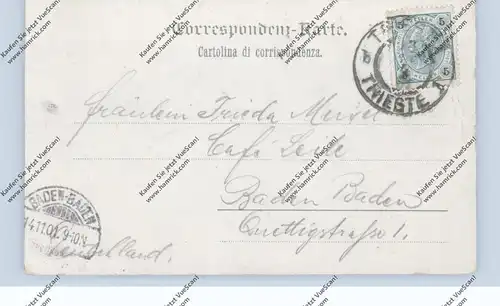 Correspondenz-Karte.
Cartolina di corrispondenza.
5 5
TRIESTE
Fräulein Frieda Meisel
Café
Baden Baden
Quettigstrasse 1.
Deutschland.
BADEN-BADEN
14.11.01. 9-10N
Kaufen Sie jetzt VueScan!
www.hamrick.com